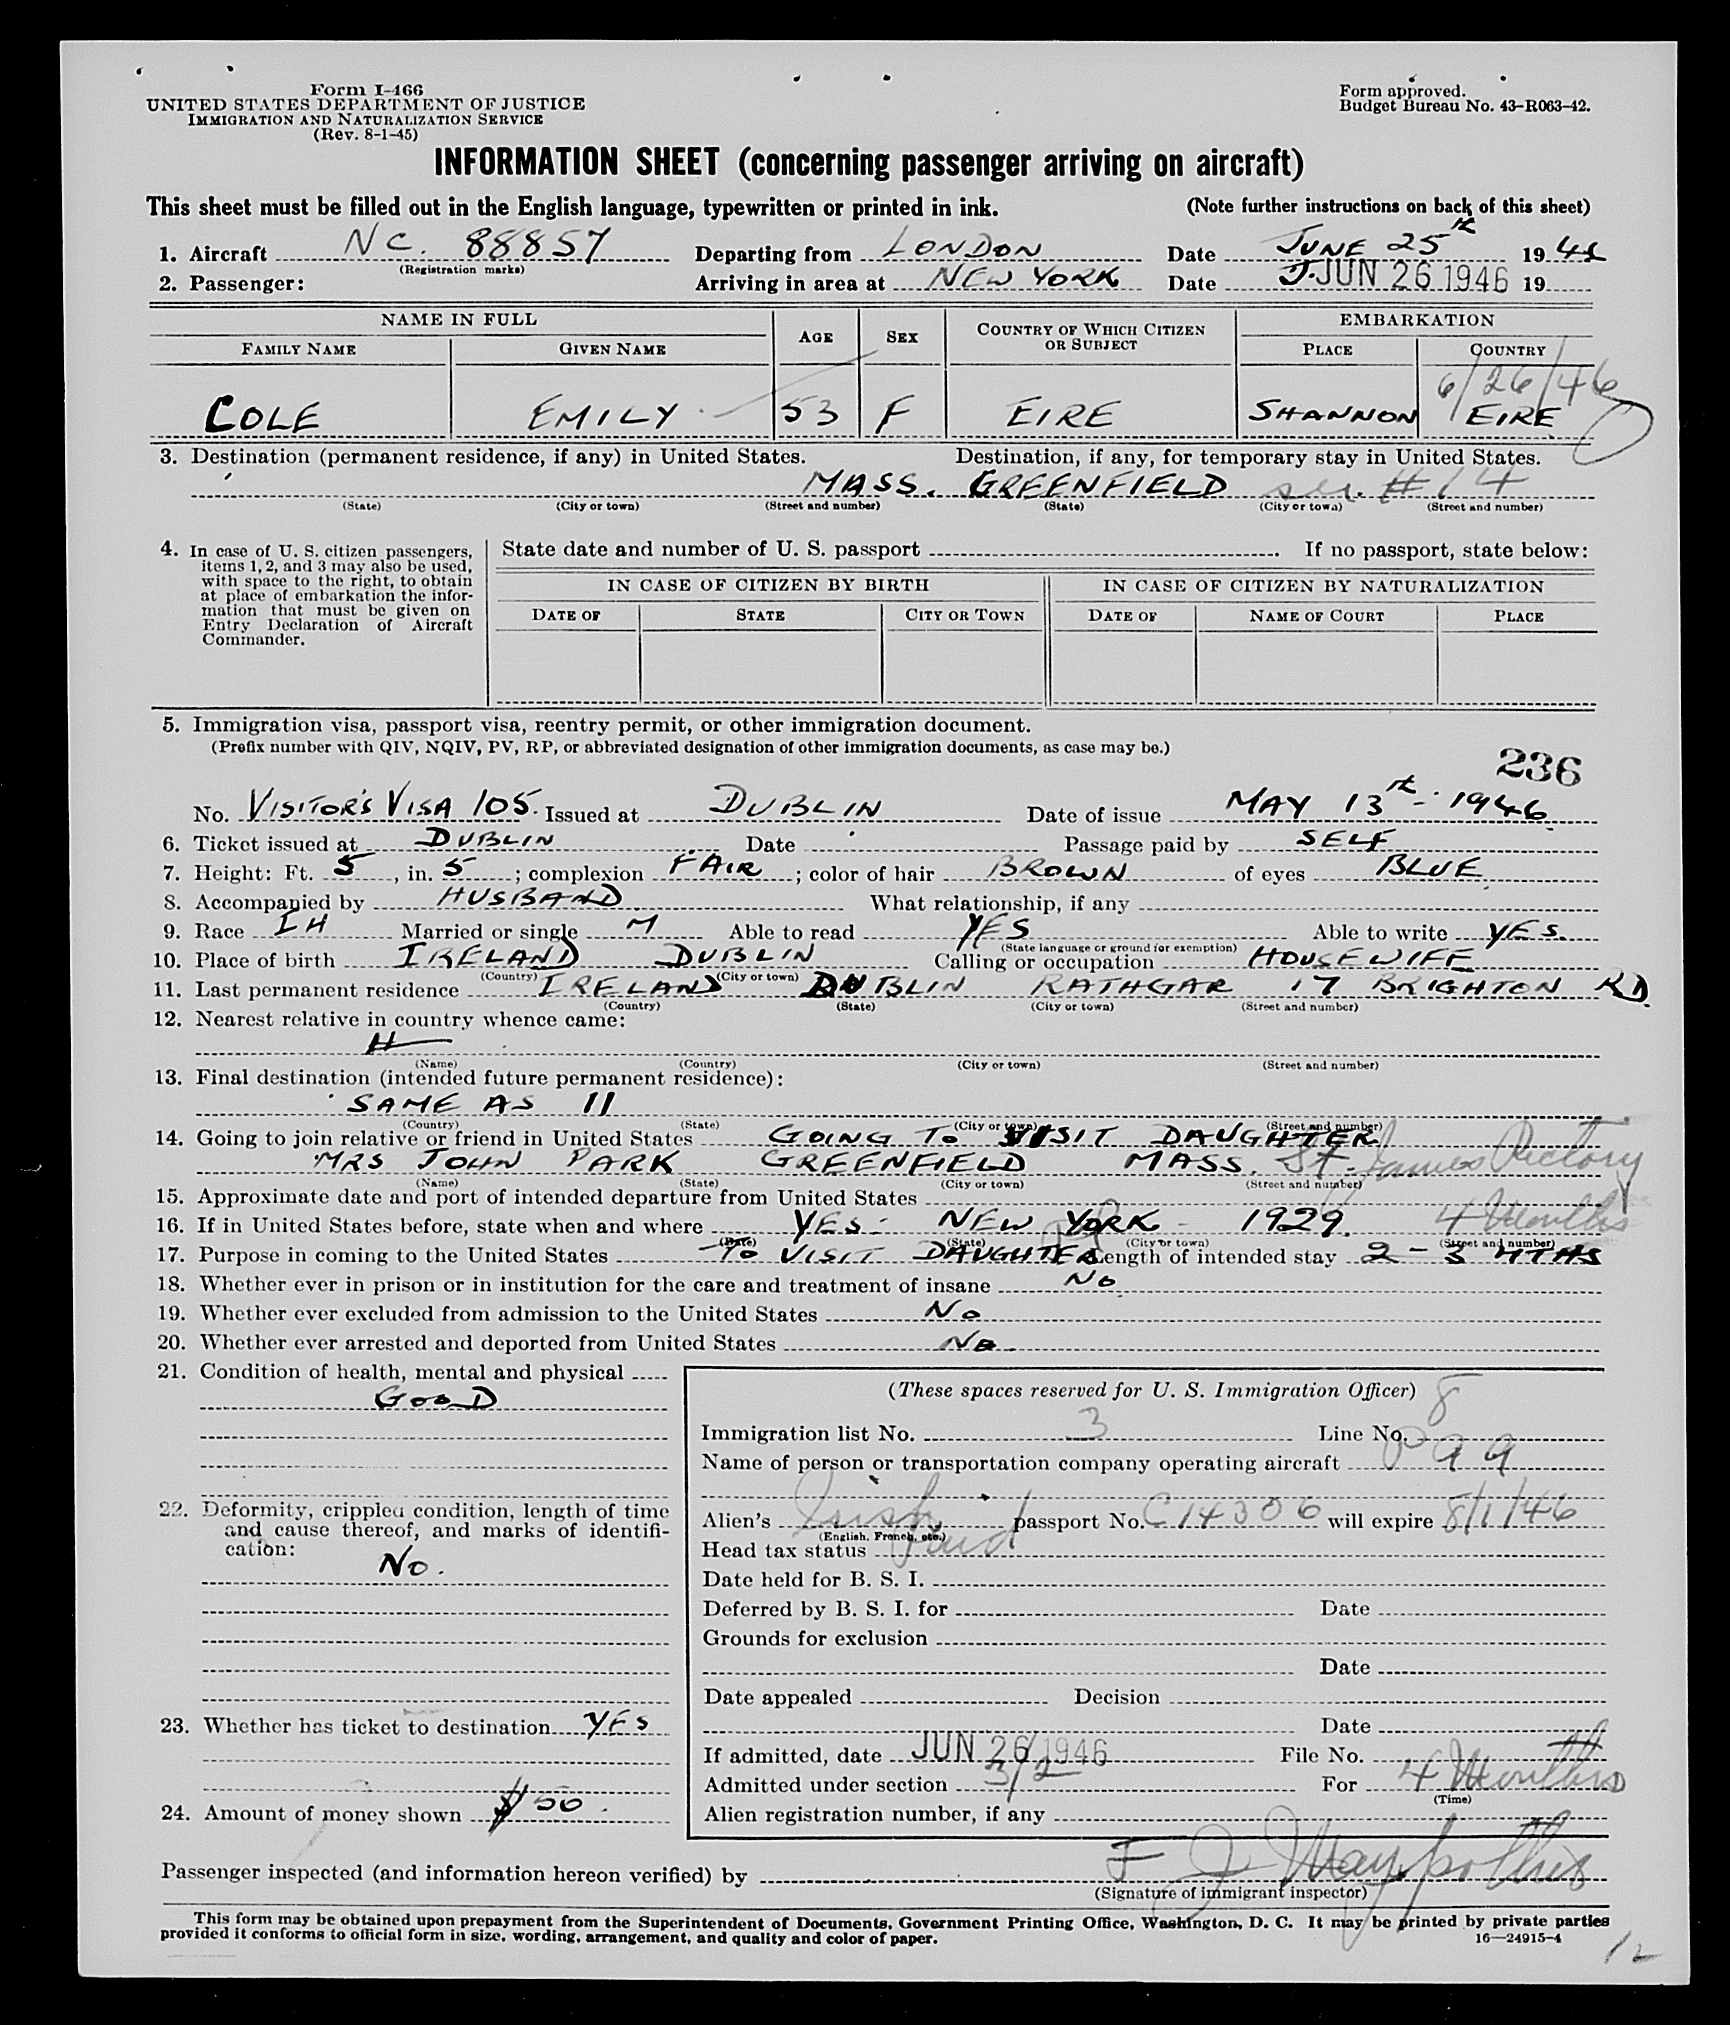 Form I-466
UNITED STATES DEPARTMENT OF JUSTICE
IMMIGRATION AND NATURALIZATION SERVICE
(Rev. 8-1-45)
Form approved.
Budget Bureau No. 43-R063-42.
INFORMATION SHEET (concerning passenger arriving on aircraft)
This sheet must be filled out in the English language, typewritten or printed in ink. (Note further instructions on back of this sheet)
1. Aircraft NC. 88857 Departing from LONDON Date JUNE 25th 1946
(Registration marks)
2. Passenger: Arriving in area at NEW YORK Date JUN 26 1946 19
NAME IN FULL AGE SEX COUNTRY OF WHICH CITIZEN OR SUBJECT EMBARKATION
FAMILY NAME GIVEN NAME PLACE COUNTRY
6/26/46
COLE EMILY 53 F EIRE SHANNON EIRE
3. Destination (permanent residence, if any) in United States. Destination, if any, for temporary stay in United States.
MASS. GREENFIELD # 14
(State) (City or town) (Street and number) (State) (City or town) (Street and number)
4. In case of U. S. citizen passengers, items 1, 2, and 3 may also be used, with space to the right, to obtain at place of embarkation the information that must be given on Entry Declaration of Aircraft Commander.
State date and number of U. S. passport . If no passport, state below:
IN CASE OF CITIZEN BY BIRTH IN CASE OF CITIZEN BY NATURALIZATION
DATE OF STATE CITY OR TOWN DATE OF NAME OF COURT PLACE
5. Immigration visa, passport visa, reentry permit, or other immigration document.
(Prefix number with QIV, NQIV, PV, RP, or abbreviated designation of other immigration documents, as case may be.)
236
No. VISITOR'S VISA 105. Issued at DUBLIN Date of issue MAY 13th - 1946
6. Ticket issued at DUBLIN Date Passage paid by SELF
7. Height: Ft. 5, in. 5; complexion FAIR; color of hair BROWN of eyes BLUE
8. Accompanied by HUSBAND What relationship, if any
9. Race IH Married or single M Able to read YES Able to write YES.
(State language or ground for exemption)
10. Place of birth IRELAND DUBLIN Calling or occupation HOUSEWIFE
(Country) (City or town)
11. Last permanent residence IRELAND DUBLIN RATHGAR 17 BRIGHTON RD.
(Country) (State) (City or town) (Street and number)
12. Nearest relative in country whence came:
(Name) (Country) (City or town) (Street and number)
13. Final destination (intended future permanent residence):
SAME AS 11
(Country) (State) (City or town) (Street and number)
14. Going to join relative or friend in United States GOING TO VISIT DAUGHTER
MRS JOHN PARK GREENFIELD MASS. St. James Rectory
(Name) (State) (City or town) (Street and number)
15. Approximate date and port of intended departure from United States
16. If in United States before, state when and where YES - NEW YORK - 1929. 4 Months
(Date) (State) (City or town) (Street and number)
17. Purpose in coming to the United States TO VISIT DAUGHTER Length of intended stay 2 - 3 MTHS
18. Whether ever in prison or in institution for the care and treatment of insane NO
19. Whether ever excluded from admission to the United States NO
20. Whether ever arrested and deported from United States NO
21. Condition of health, mental and physical
GOOD
22. Deformity, crippled condition, length of time and cause thereof, and marks of identification:
NO.
23. Whether has ticket to destination YES
24. Amount of money shown $50.
(These spaces reserved for U. S. Immigration Officer)
Immigration list No. 3 Line No. 8
Name of person or transportation company operating aircraft P a a
Alien's Irish passport No. C14306 will expire 8/1/46
(English, French, etc.)
Head tax status Paid
Date held for B. S. I.
Deferred by B. S. I. for Date
Grounds for exclusion
Date
Date appealed Decision
Date
If admitted, date JUN 26 1946 File No.
Admitted under section 3/2 For 4 Months
(Time)
Alien registration number, if any
Passenger inspected (and information hereon verified) by
(Signature of immigrant inspector)
This form may be obtained upon prepayment from the Superintendent of Documents, Government Printing Office, Washington, D. C. It may be printed by private parties
provided it conforms to official form in size, wording, arrangement, and quality and color of paper. 16—24915-4
12